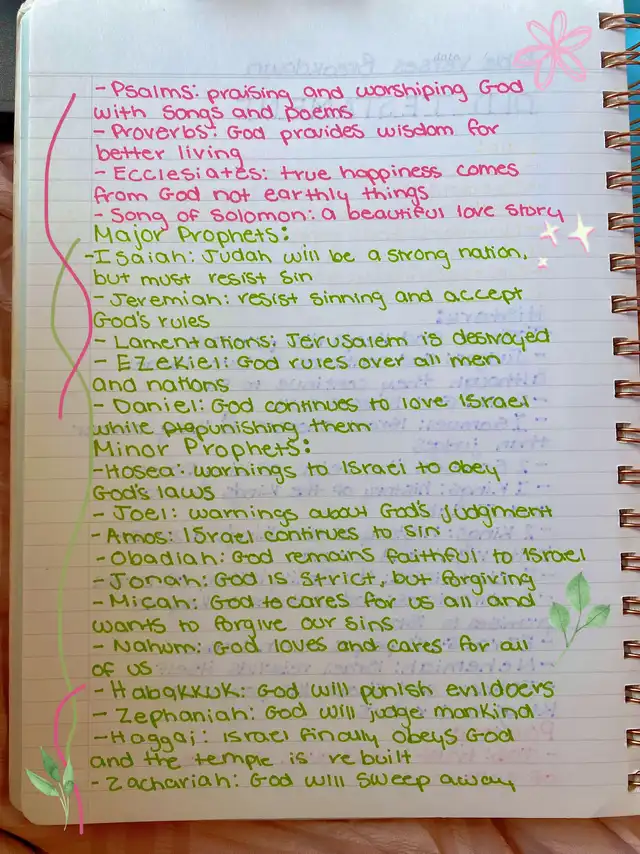 - Psalms: praising and worshiping God
with songs and poems
- Proverbs: God provides wisdom for
better living
- Ecclesiates: true happiness comes
from God not earthly things
- Song of Solomon: a beautiful love story
Major Prophets:
- Isaiah: Judah will be a strong nation,
but must resist sin
- Jeremiah: resist sinning and accept
God's rules
- Lamentations: Jerusalem is destroyed
- Ezekiel: God rules over all men
and nations
- Daniel: God continues to love Israel
while punishing them
Minor Prophets:
- Hosea: warnings to Israel to obey
God's laws
- Joel: warnings about God's judgment
- Amos: Israel continues to sin
- Obadiah: God remains faithful to Israel
- Jonah: God is strict, but forgiving
- Micah: God to cares for us all and
wants to forgive our sins
- Nahum: God loves and cares for all
of us
- Habakkuk: God will punish evildoers
- Zephaniah: God will judge mankind
- Haggai: Israel finally obeys God
and the temple is rebuilt
- Zachariah: God will sweep away